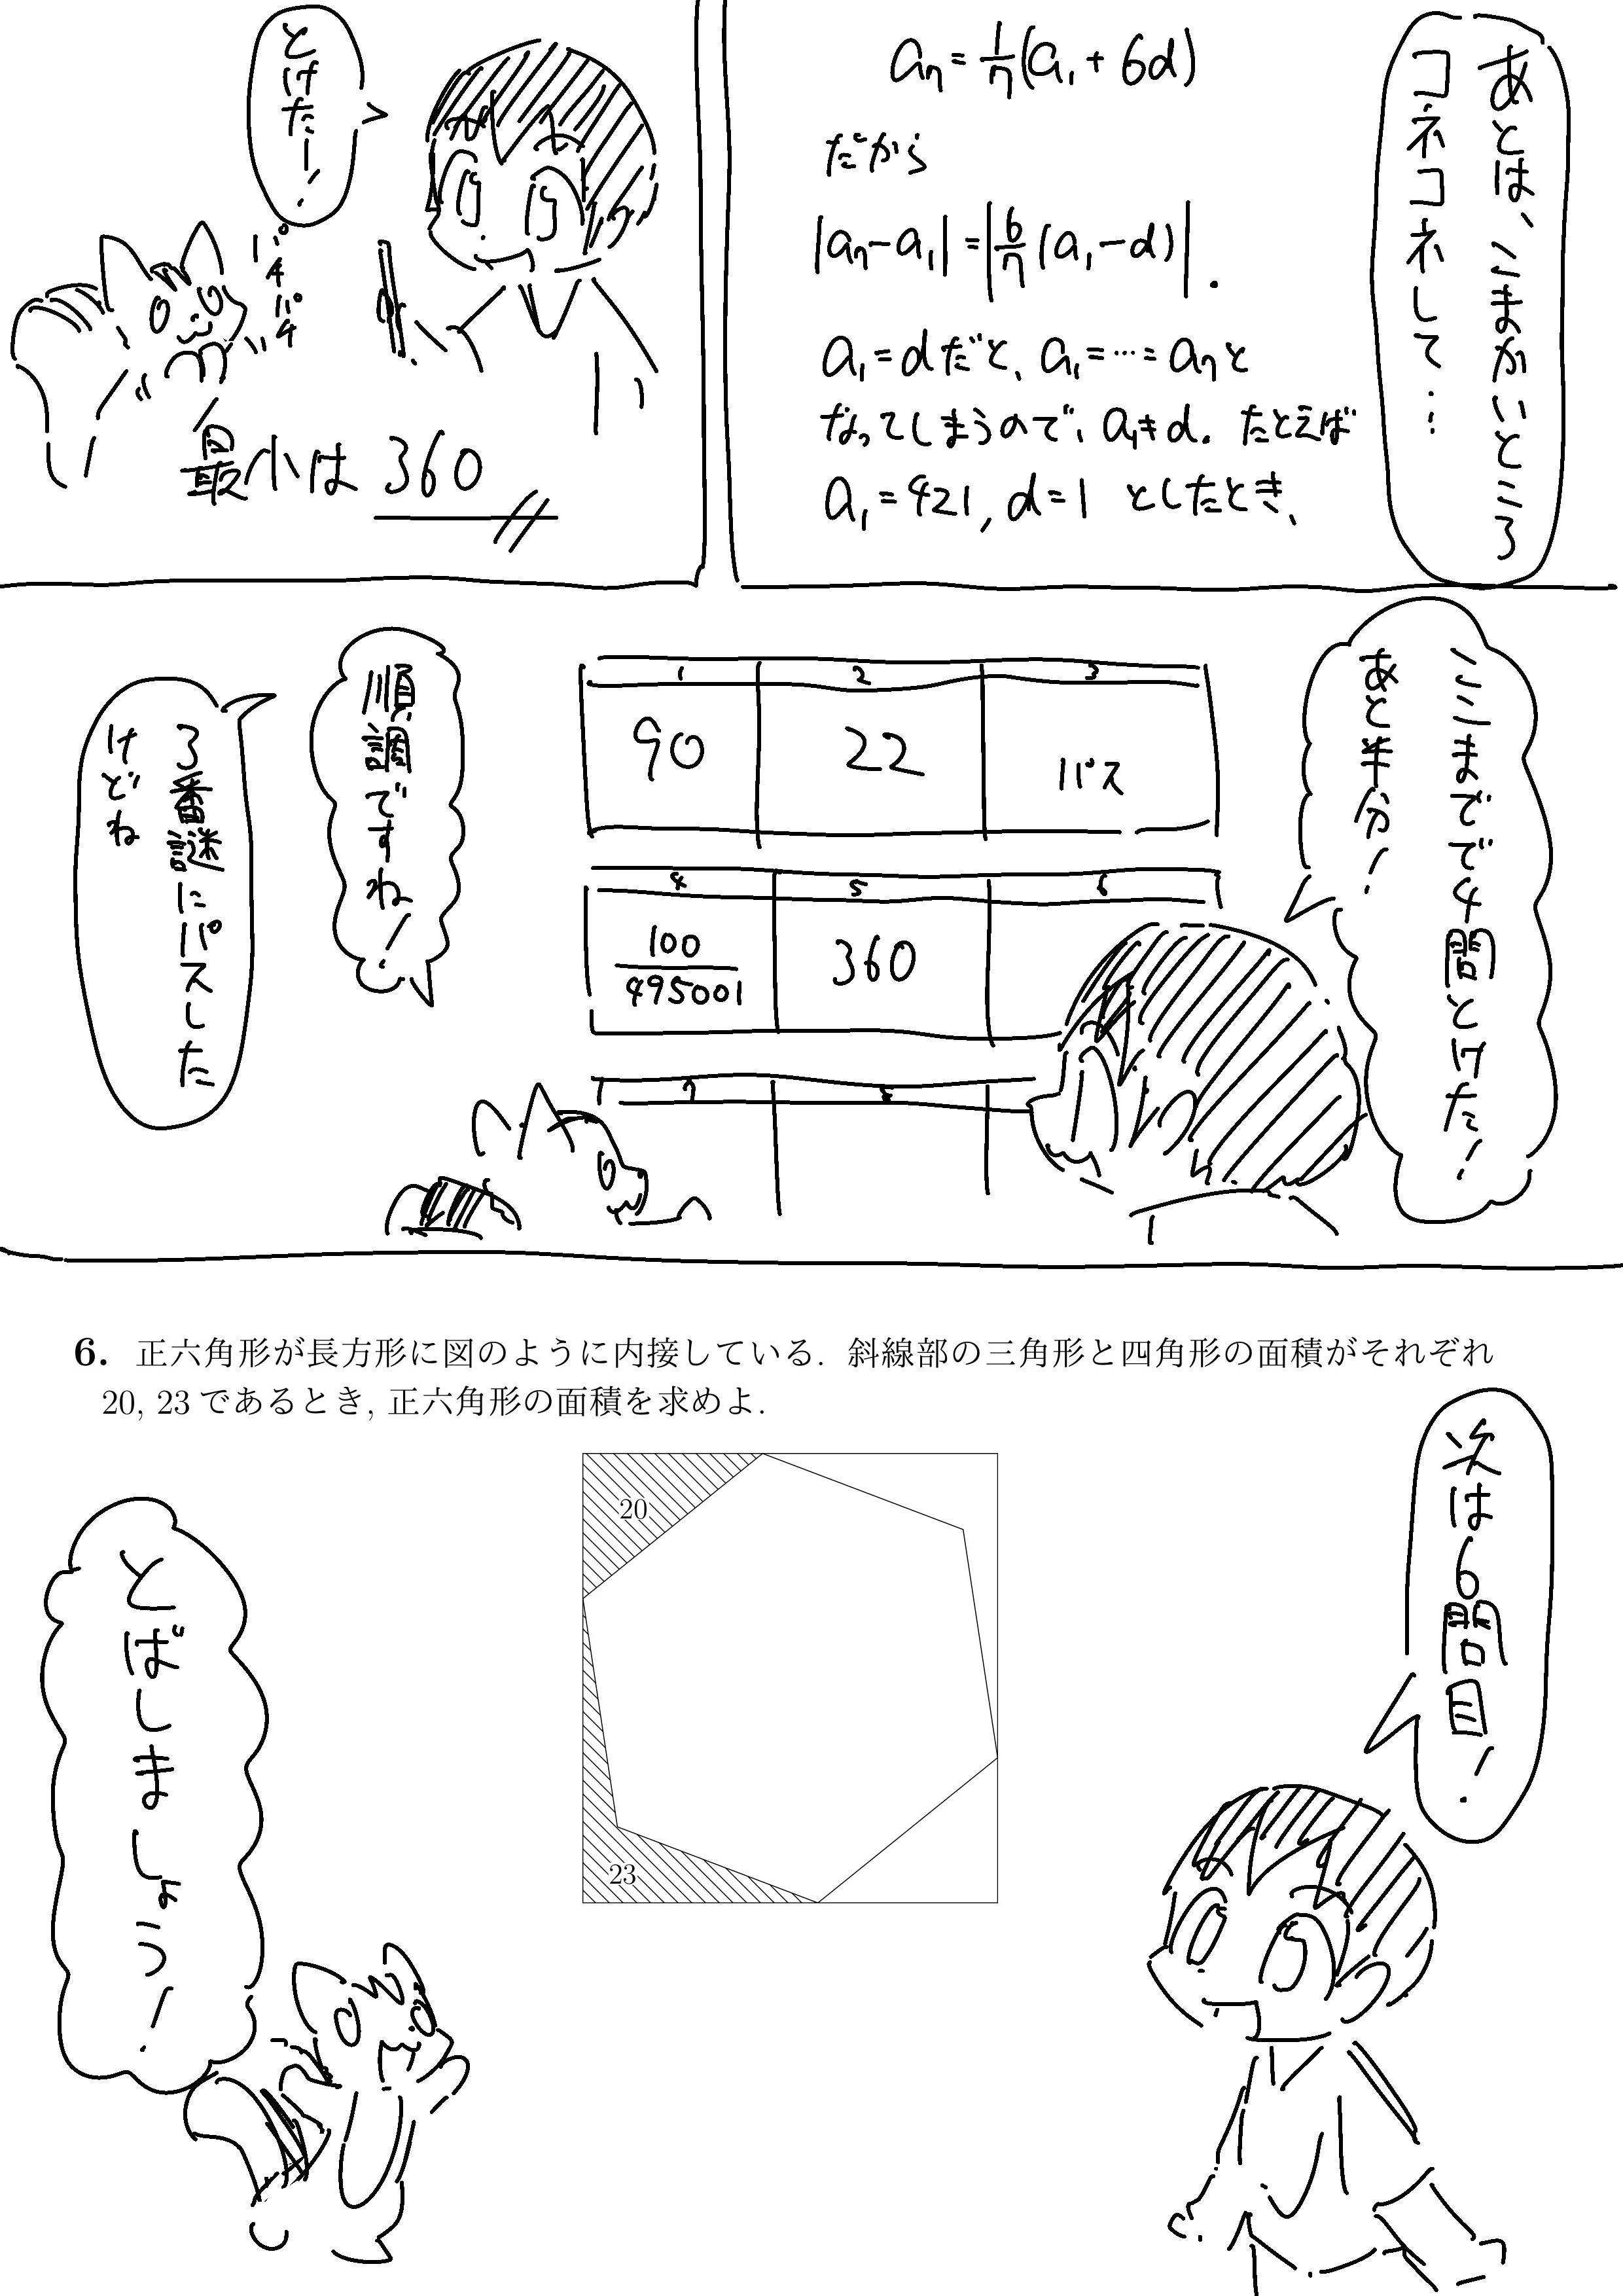 あとは、こまかいところ
コネコネして…
a₇=1/7(a₁+6d)
だから
|a₇-a₁|=|6/7(a₁-d)|.
a₁=dだと、a₁=…=a₇と
なってしまうので、a₁≠d. たとえば
a₁=421, d=1 としたとき、
とけたー!
パチパチ
最小は 360
ここまでで4問とけた!
あと半分!
1 2 3
90 22 パス
4 5 6
100/495001 360
7 8
順調ですね!
3番謎にパスした
けどね
6. 正六角形が長方形に図のように内接している. 斜線部の三角形と四角形の面積がそれぞれ
20, 23 であるとき, 正六角形の面積を求めよ.
20
23
次は6問目!
とばしましょう!